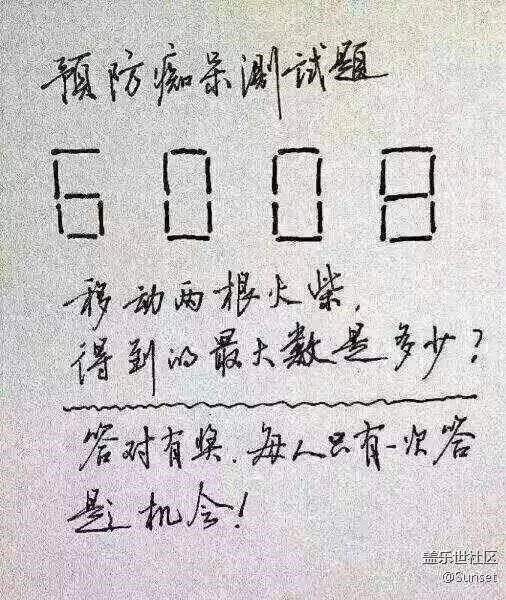 预防痴呆测试题
6008
移动两根火柴,
得到的最大数是多少?
答对有奖.每人只有一次答
题机会!
盖乐世社区
@Sunset